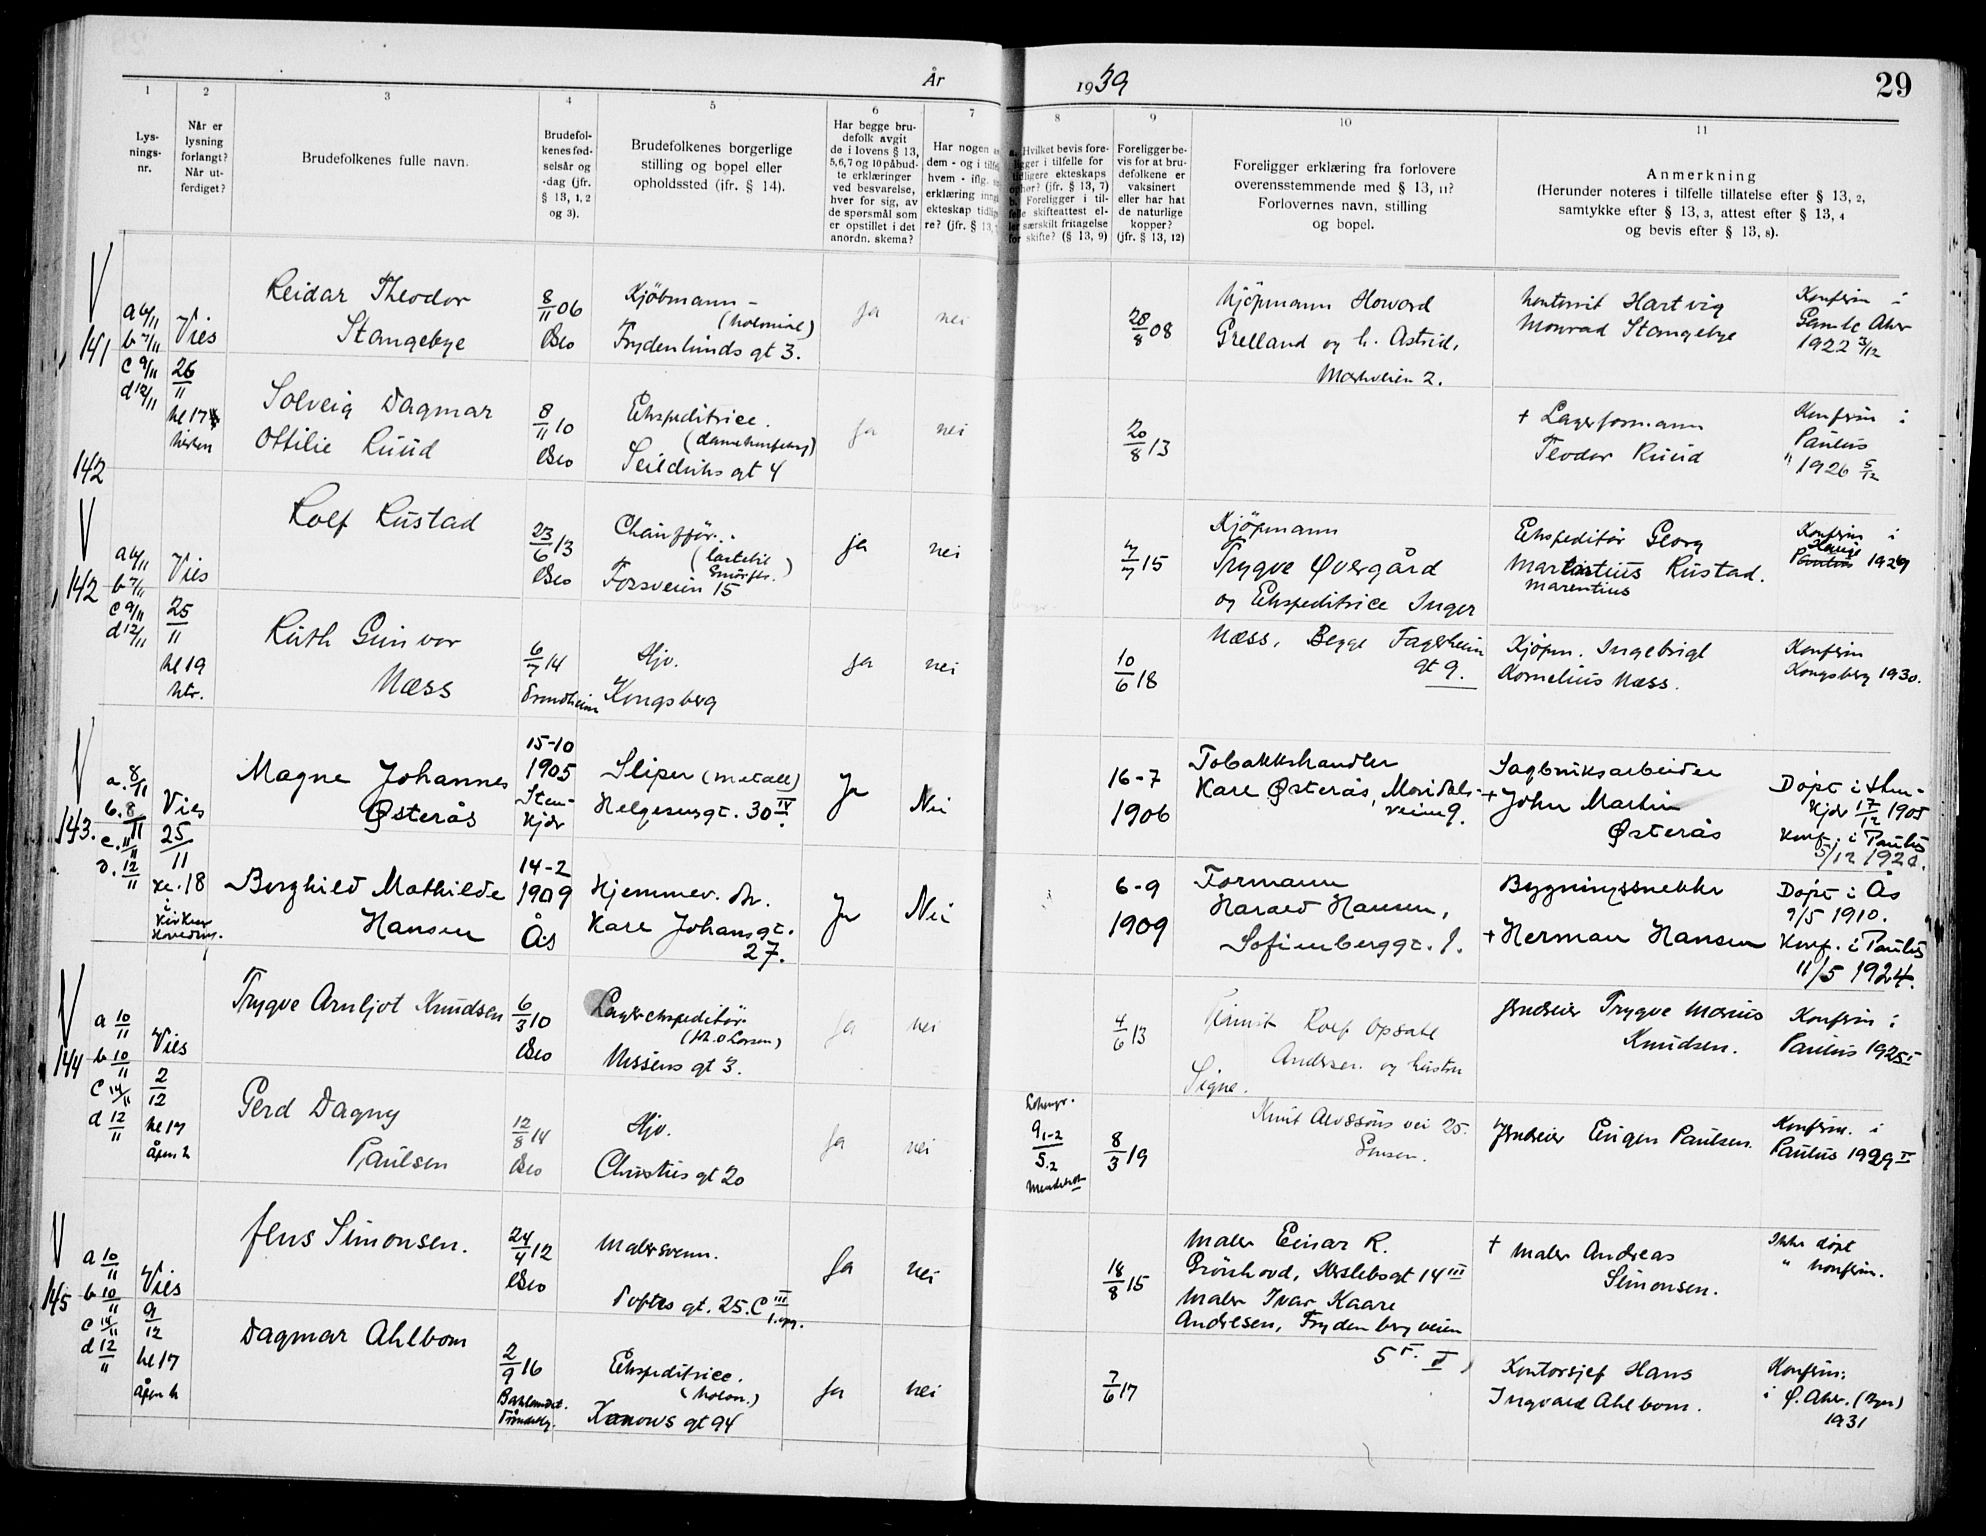 År 1939
29
1
2
3
4
5
6
7
8
9
10
11
Lys-
nings-
nr.
Når er
lysning
forlangt?
Når ut-
ferdiget?
Brudefolkenes fulle navn.
Brudefol-
kenes fød-
selsår og
-dag (jfr.
§ 13, 1, 2
og 3).
Brudefolkenes borgerlige
stilling og bopel eller
opholdssted (ifr. § 14).
Har begge bru-
defolk avgit
de i lovens § 13,
5,6,7 og 10 påbud-
te erklæringer
ved besvarelse,
hver for sig, av
de spørsmål som
er opstillet i det
anordn. skema?
Har nogen
dem - og i
hvem - iflg.
erklæring
ekteskap
re? (jfr. § 13,
a. Hvilket bevis fore-
ligger i tilfelle for
tidligere ekteskaps
ophør? (jfr. § 13, 7)
b. Foreligger i til-
felle skifteattest el-
ler særskilt fritagelse
for skifte? (§ 13, 9)
Foreligger be-
vis for at bru-
defolkene er
vaksinert
eller har hat
de naturlige
kopper?
(jfr. § 13, 12)
Foreligger erklæring fra forlovere
overensstemmende med § 13, 11?
Forlovernes navn, stilling
og bopel.
Anmerkning
(Herunder noteres i tilfelle tillatelse efter § 13, 2,
samtykke efter § 13, 3, attest efter § 13, 4
og bevis efter § 13, 8).
141
c 9/11
d 12/11
Vies
26/11
kl 17
Reidar Theodor
Stangebye
8/11 06
Oslo
Kjøbmann -
(kolonial)
Frydenlunds gt 3.
ja
nei
28/8 08
Kjøpmann Howard
Grelland og h. Astrid,
2.
Hartvig
Monrad Stangebye
Konfirm i
Gamle Aker
1922 3/12
142
Solveig Dagmar
Ottilie Ruud
8/11 10
Oslo
Ekspeditrice.
Seilduks gt 4
ja
nei
20/8 13
+ Lagerformann
Teodor Ruud
Konfirm i
Paulus
" 1926 5/12
142
c 9/11
d 12/11
Vies
25/11
kl 19
Rolf Rustad
23/6 13
Oslo
Chauffør.
(lastebil
)
Forsveien 15
ja
nei
7/7 15
Kjøpmann
Trygve Øvergård
og Ekspeditrice Inger
Næss, Begge Fagerheim
gt 9.
Ekspeditør Georg
Rustad.
Marentius
Konfirm i
Hauge
Paulus 1929
Ruth Gunvor
Næss
6/7 14
Trondheim
Hjv.
Kongsberg
ja
nei
10/6 18
Kjøpm. Ingebrigt
Kornelius Næss.
Konfirm
Kongsberg 1930.
143.
a. 8/11
b. 8/11
c. 11/11
d. 12/11
Vies
25/11
kl. 18
i
Kirken
Magne Johannes
Østerås
15-10
1905
Sten-
kjær
Sliper (metall)
Helgesensgt. 30 IV.
Ja
Nei
16-7
1906
Tobakkshandler
Kare Østerås, Maridals-
veien 9.
Sagbruksarbeider
+ John Martin
Østerås
Døpt i Sten-
kjær 17/12 1905
Konf. i Paulus
5/12 1920.
Borghild Mathilde
Hansen
14-2
1909
Ås
Hjemmev. dtr.
Karl Johansgt.
27.
Ja
Nei
6-9
1909
Formann
Harald Hansen,
Sofienberggt. 1.
Bygningssnekker
+ Herman Hansen
Døpt i Ås
9/5 1910.
Konf. i Paulus
11/5 1924.
144
a 10/11
b 10/11
c 14/11
d 12/11
Vies
2/12
kl 17
åpen k
Trygve Arnljot Knudsen
6/3 10
Oslo
Lagerekspeditør
Nissens gt 3.
ja
nei
4/6 13
Rolf Opsahl
Andersen og hustru
Signe.
Knut Alvssøns vei 25.
Trygve Marius
Knudsen.
Konfirm i
Paulus 1925 I
Gerd Dagny
Paulsen
12/8 14
Oslo
Hjv.
Christies gt 20
ja
nei
8/3 19
Eugen Paulsen.
Konfirm. i
Paulus 1929 II
145
a 10/11
b 10/11
c 14/11
d 12/11
Vies
9/12
kl 17
åpen k
Jens Simonsen.
24/4 12
Oslo
Malersvenn.
Toftes gt. 25. C III
Ja
nei
18/8 15
Maler Einar R.
Grönhovd, Herslebsgt 14 III
Maler Ivar Kaare
Andresen, Frydenbergveien
5
+ Maler Andreas
Simonsen.
Ikke døpt
" konfirm.
Dagmar Ahlbom
2/9 16
Ekspeditrice.
(kolon.)
Kanows gt 94
ja
nei
7/6 17
Kontorsjef Hans
Ingvald Ahlbom.
Konfirm:
i Ø. Aker.
1931